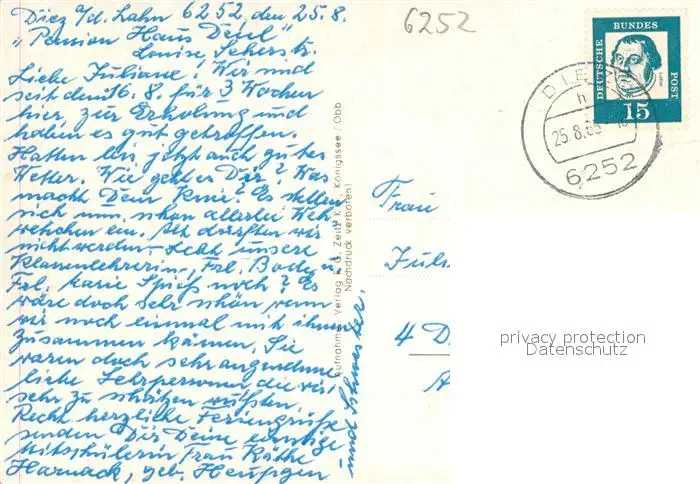 Diez a/d. Lahn 6252, den 25.8.
"Pension Haus
Louise Seherstr.
Liebe Juliane! Wir sind
seit dem 16. 8. für 3 Wochen
hier, zur Erholung und
haben es gut getroffen.
Hatten bis jetzt auch gutes
Wetter. Wie geht es Dir? Was
macht Dein Knie? Es stellen
sich nun schon allerlei Weh
wehchen ein. Alt dürften wir
nicht werden. Lebt unsere
Klassenlehrerin, Frl. Bode u.
Frl. Marie Spieß noch? Es
wäre doch sehr schön wenn
wir noch einmal mit ihnen
zusammen kämen. Sie
waren doch sehr angenehme
liebe Lehrpersonen, die wir
sehr zu schätzen wußten.
Recht herzliche Feriengrüße
senden Dir Deine einstige
Mitschülerin Frau Käthe
Harnack, geb. Heupgen
und Schwester.
6252
DEUTSCHE
BUNDES
POST
Luther
15
DIEZ
h
25.8.65
6252
Verlag
Königssee / Obb
Nachdruck verboten!
Frau
Juli
4 D
privacy protection
Datenschutz